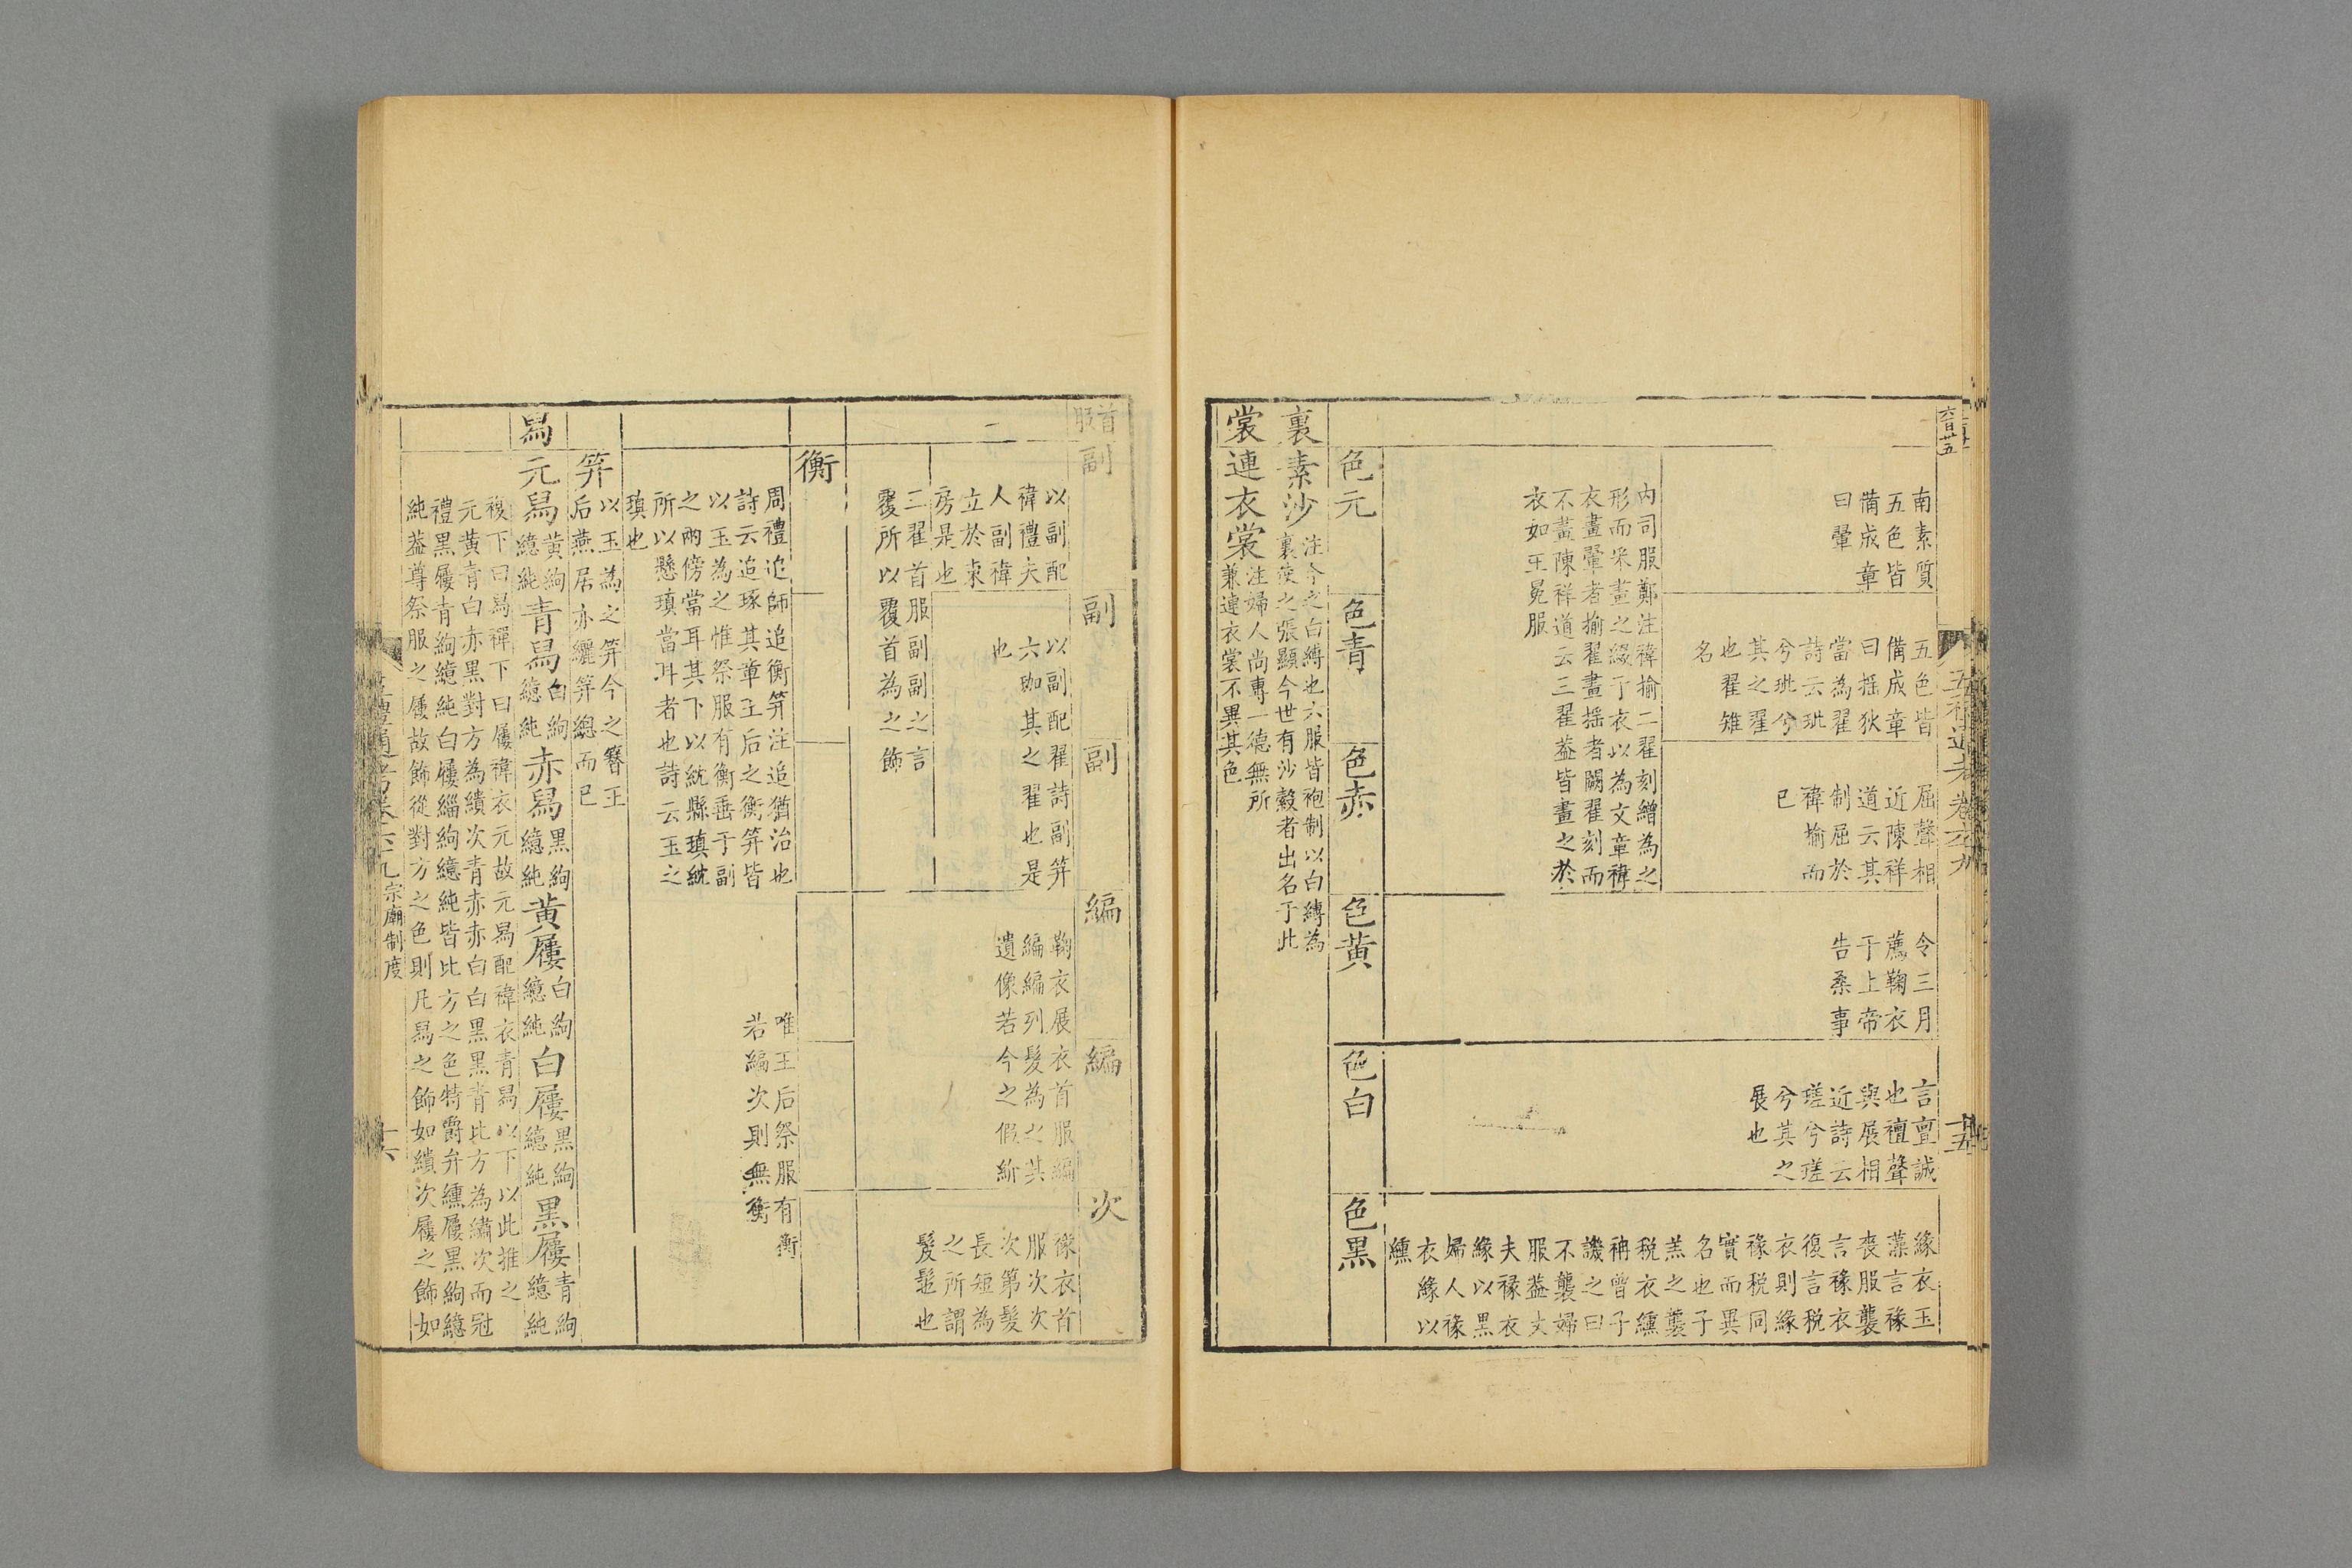 南素質
五色皆
備成章
曰翬
五色皆
備成章
曰搖狄
當為翟
詩云玼
兮玼兮
其之翟
也翟雉
名
屈聲相
近陳祥
道云其
制屈於
褘揄而
已
內司服鄭注褘揄二翟刻繒為之
形而采畫之綴于衣以為文章褘
衣畫翬者揄翟畫搖者闕翟刻而
不畫陳祥道云三翟葢皆畫之於
衣如王冕服
令三月
薦鞠衣
于上帝
告桑事
言亶誠
也襢聲
與展相
近詩云
瑳兮瑳
兮其之
展也
緣衣玉
藻言褖
喪服襲
言褖衣
復言稅
衣則緣
褖稅同
實而異
名也子
羔之襲
稅衣纁
袡曾子
譏之曰
不襲婦
服葢丈
夫褖衣
緣以黑
婦人褖
衣緣以
纁
色元
色青
色赤
色黃
色白
色黑
裏素沙
注今之白縳也六服皆袍制以白縳為
裏使之張顯今世有沙縠者出名于此
裳連衣裳
注婦人尚專一德無所
兼連衣裳不異其色
首服
副
副
副
編
編
次
以副配
褘禮夫
人副褘
立於東
房是也
以副配翟詩副笄
六珈其之翟也是
也
二翟首服副副之言
覆所以覆首為之飾
鞠衣展衣首服編
編編列髮為之其
遺像若今之假紒
褖衣首
服次次
次第髮
長短為
之所謂
髲髢也
衡
周禮追師追衡笄注追猶治也
詩云追琢其章王后之衡笄皆
以玉為之惟祭服有衡垂于副
之兩傍當耳其下以紞縣瑱紞
所以懸瑱當耳者也詩云玉之
瑱也
唯王后祭服有衡
若編次則無衡
笄
以玉為之笄今之簪王
后燕居亦纚笄總而已
舄
元舄 黃絇繶純 青舄 白絇繶純 赤舄 黑絇繶純 黃屨 白絇繶純 白屨 黑絇繶純 黑屨 青絇繶純
複下曰舄襌下曰屨褘衣元故元舄配褘衣青舄以下以此推之
元黃青白赤黑對方為繢次青赤赤白白黑黑青比方為繡次而冠
禮黑屨青絇繶純白屨緇絇繶純皆比方之色特爵弁纁屨黑絇繶
純葢尊祭服之屨故飾從對方之色則凡舄之飾如繢次屨之飾如
宗廟制度